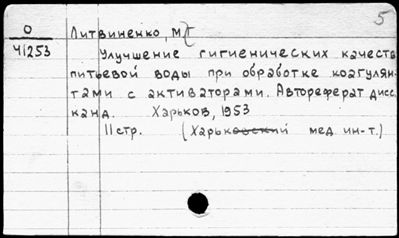 5
О
41253
Литвиненко, М.Г
Улучшение гигиенических качеств
питьевой воды при обработке коагулян-
тами с активаторами. Автореферат дисс.
канд. Харьков, 1953
11 стр. (Харьковский мед. ин-т.)